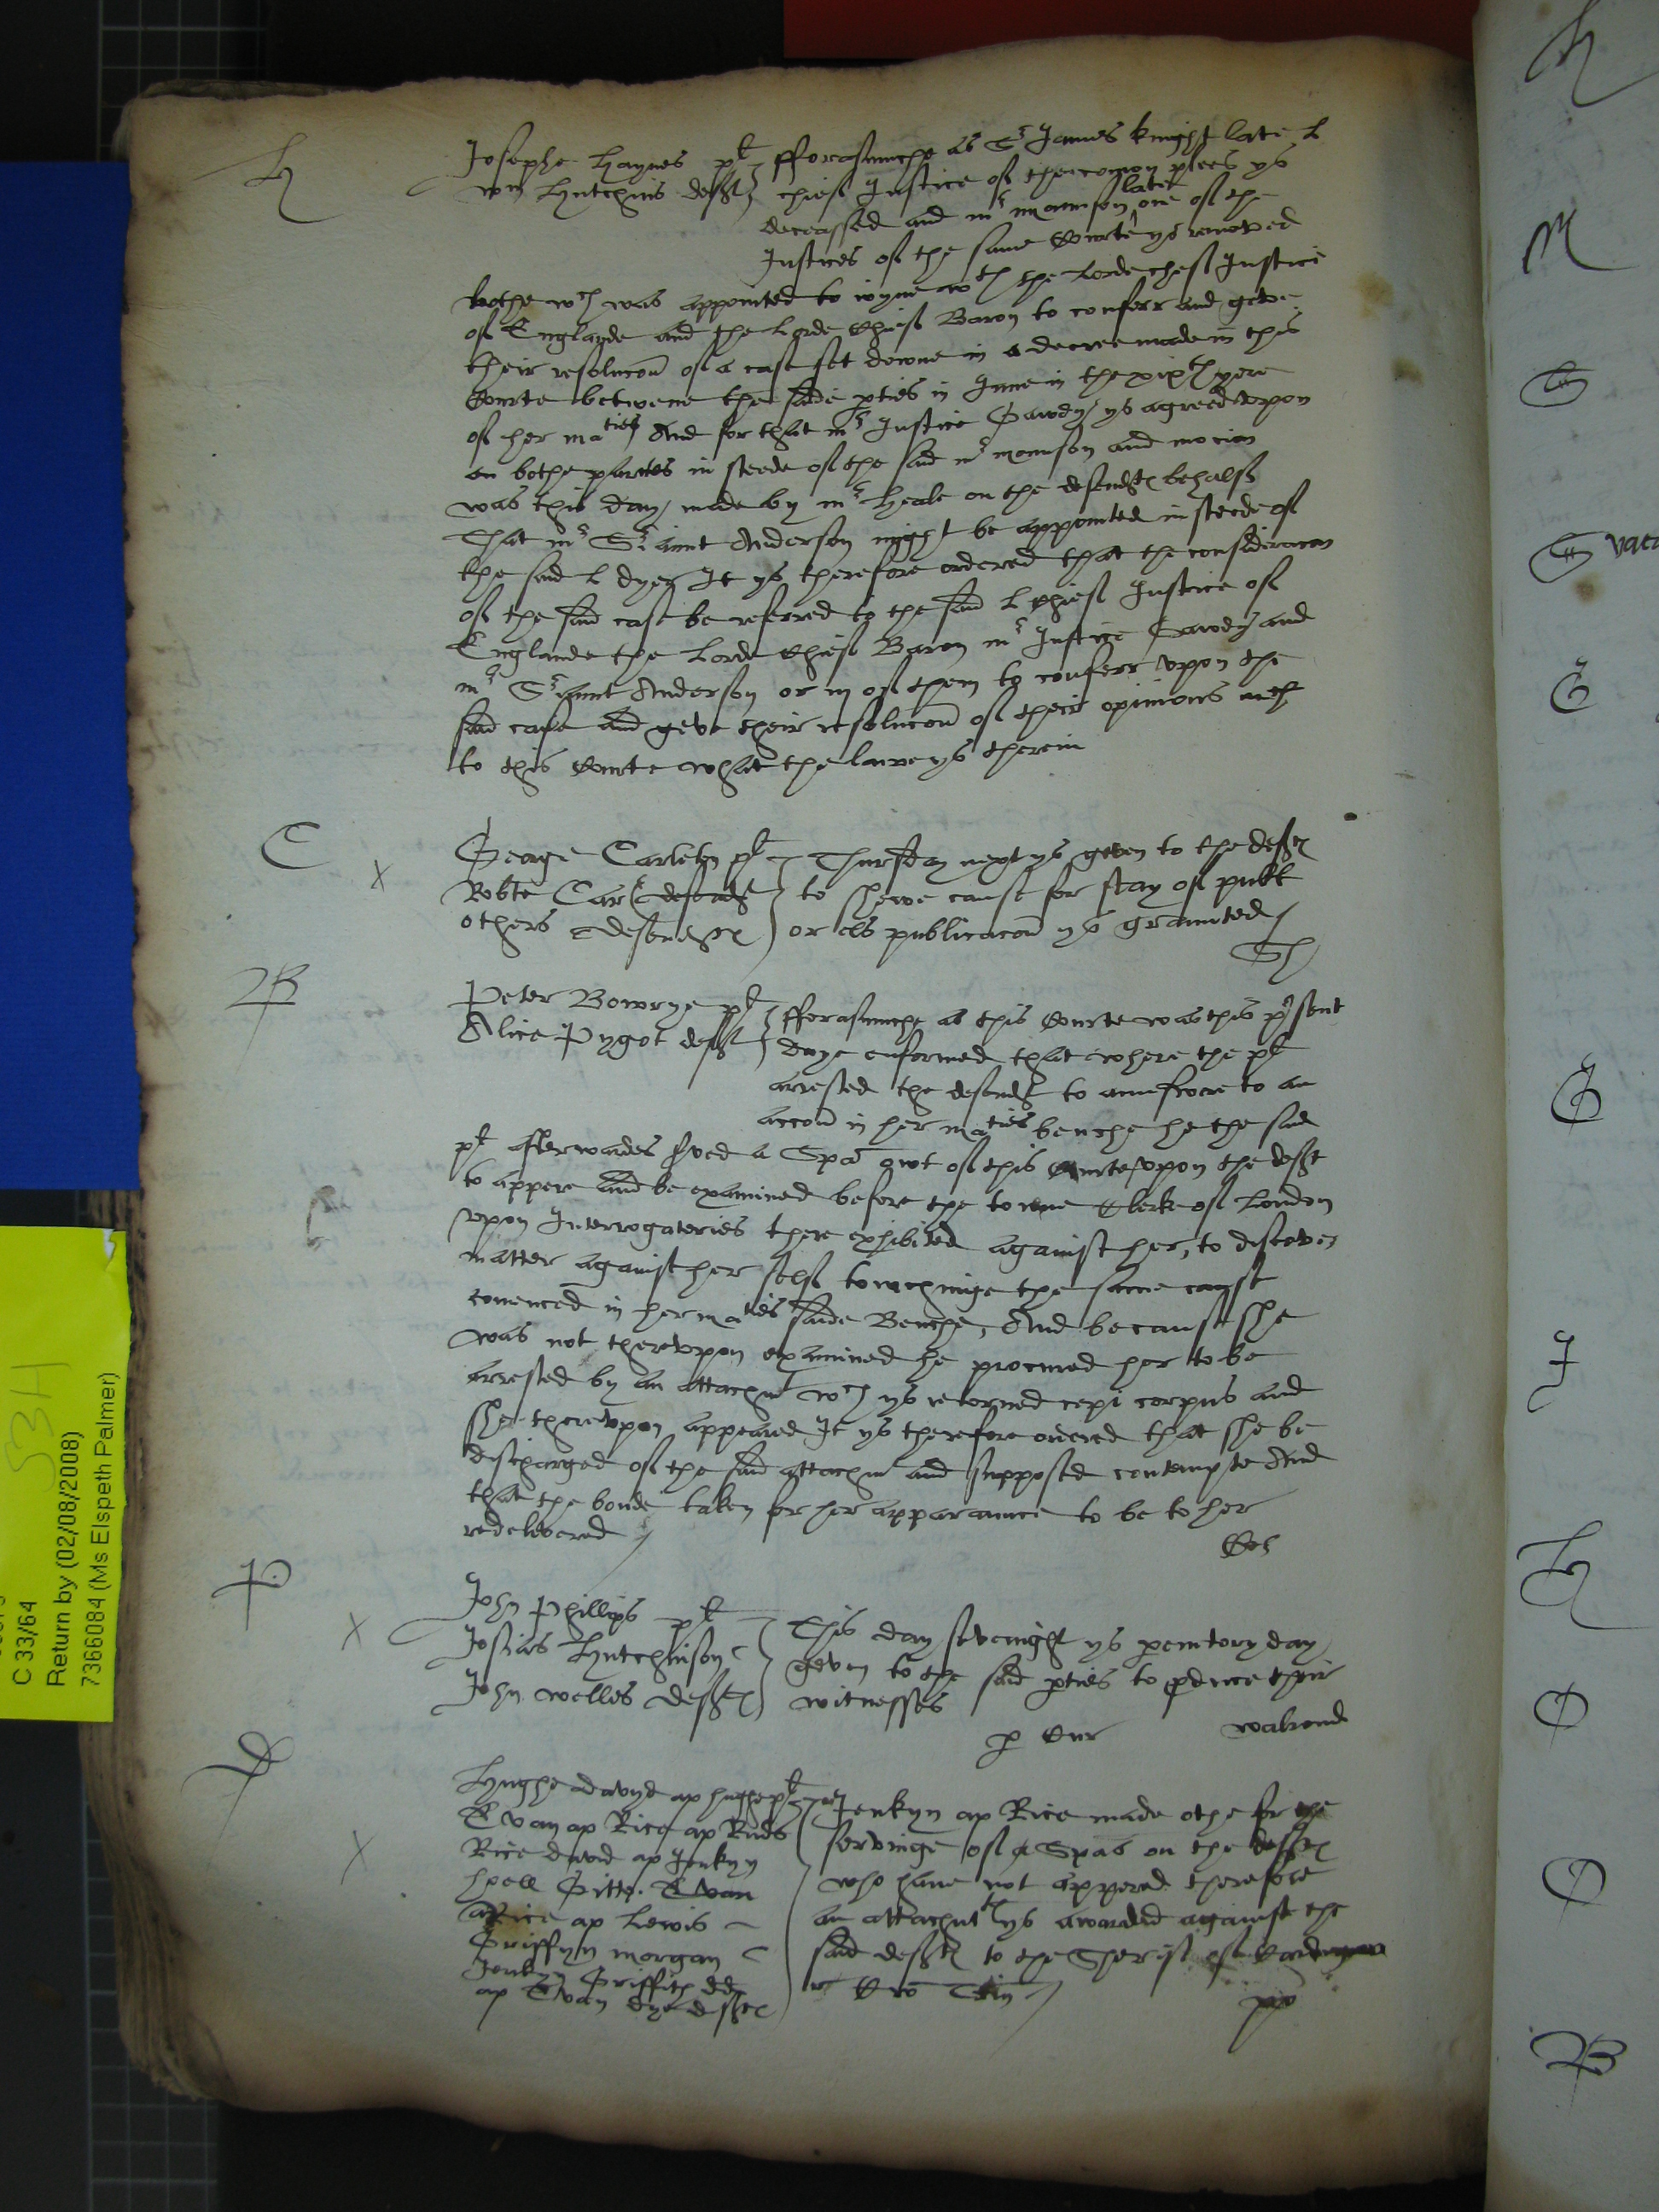 H
Josephe Haynes pl fforasmuche as Sr James knight late L
wm Hutchins deft chief Justice of the comon plees ys
deceassed and mr mounson late one of the
Justices of the same Courte ys removed
bothe wch was appointed to ioyne wth the Lorde chef Justice
of Englande and the Lorde Chief Baron to conferr and geve
their resolucon of a case set downe in a decree made in this
Courte betwene the saide pties in June in the xixth yere
of her maties And for that mr Justice Gawdy ys agreed vpon
on bothe partes in steede of the said mr mounson and mocion
was this day made by mr Heale on the defendtes behalf
That mr Sr iaunt Anderson might be appointed in steede of
the said L dyer It ys therefore ordered that the consideracon
of the said case be referred to the said L Chief Justice of
Englande the Lorde Chief Baron mr Justice Gawdy and
mr Sr iaunt Anderson or iij of them to conferr vpon the
said case and geve their resolucon of their opinions
to this Courte what the lawe ys therein
C
x
George Carleton pl Thursday next ys geven to the deftes
Robte Car defendt to shewe cause for stay of publ
others defendtes or els publicacon ys graunted
Sh
B
Peter Bowrye pl fforasmuche as this Courte was this present
Alice Pygot deft daye enformed that where the pl
arrested the defendt to aunswere to an
accon in her maties benche he the said
pl afterwardes srved a Spa owt of this Courte vpon the deft
to appere and be examined before the towne Clerke of London
vpon Interrogatories there exhibited against her, to discover
matter against her self towchinge the same cause
comenced in her maties saide Benche, And because she
was not therevpon examined he procured her to be
arrested by an attachmt wch ys retorned cepi corpus and
she therevpon appeared It ys therefore ordered that she be
discharged of the said attachmt and supposed contempte And
that the bonde taken for her apparaunce to be to her
redelivered
P
x
John Phillips pl This day sevenight ys pemtory day
Josias Hutchinson geven to the said pties to pduce their
John welles deftes witnesses
p Cur walrond
D
x
Hughe davyd ap hughe pl Jenkyn ap Rice made othe for the
Evan ap Rice ap Ruds servinge of a Spas on the deftes
Rice david ap Jenkyn who have not appered therefore
hoell Gitto Evan an attachmt ys awarded against the
ap Rice ap Lewis said deftes to the Sherif of Cardigan
Griffyn morgan
Jenkyn Griffith dd
ap Evan dyo deftes
pp
H
M
G
G vaca
G
G
J
H
O
O
B
53H
C 33/64
Return by (02/08/2008)
7366084 (Ms Elspeth Palmer)